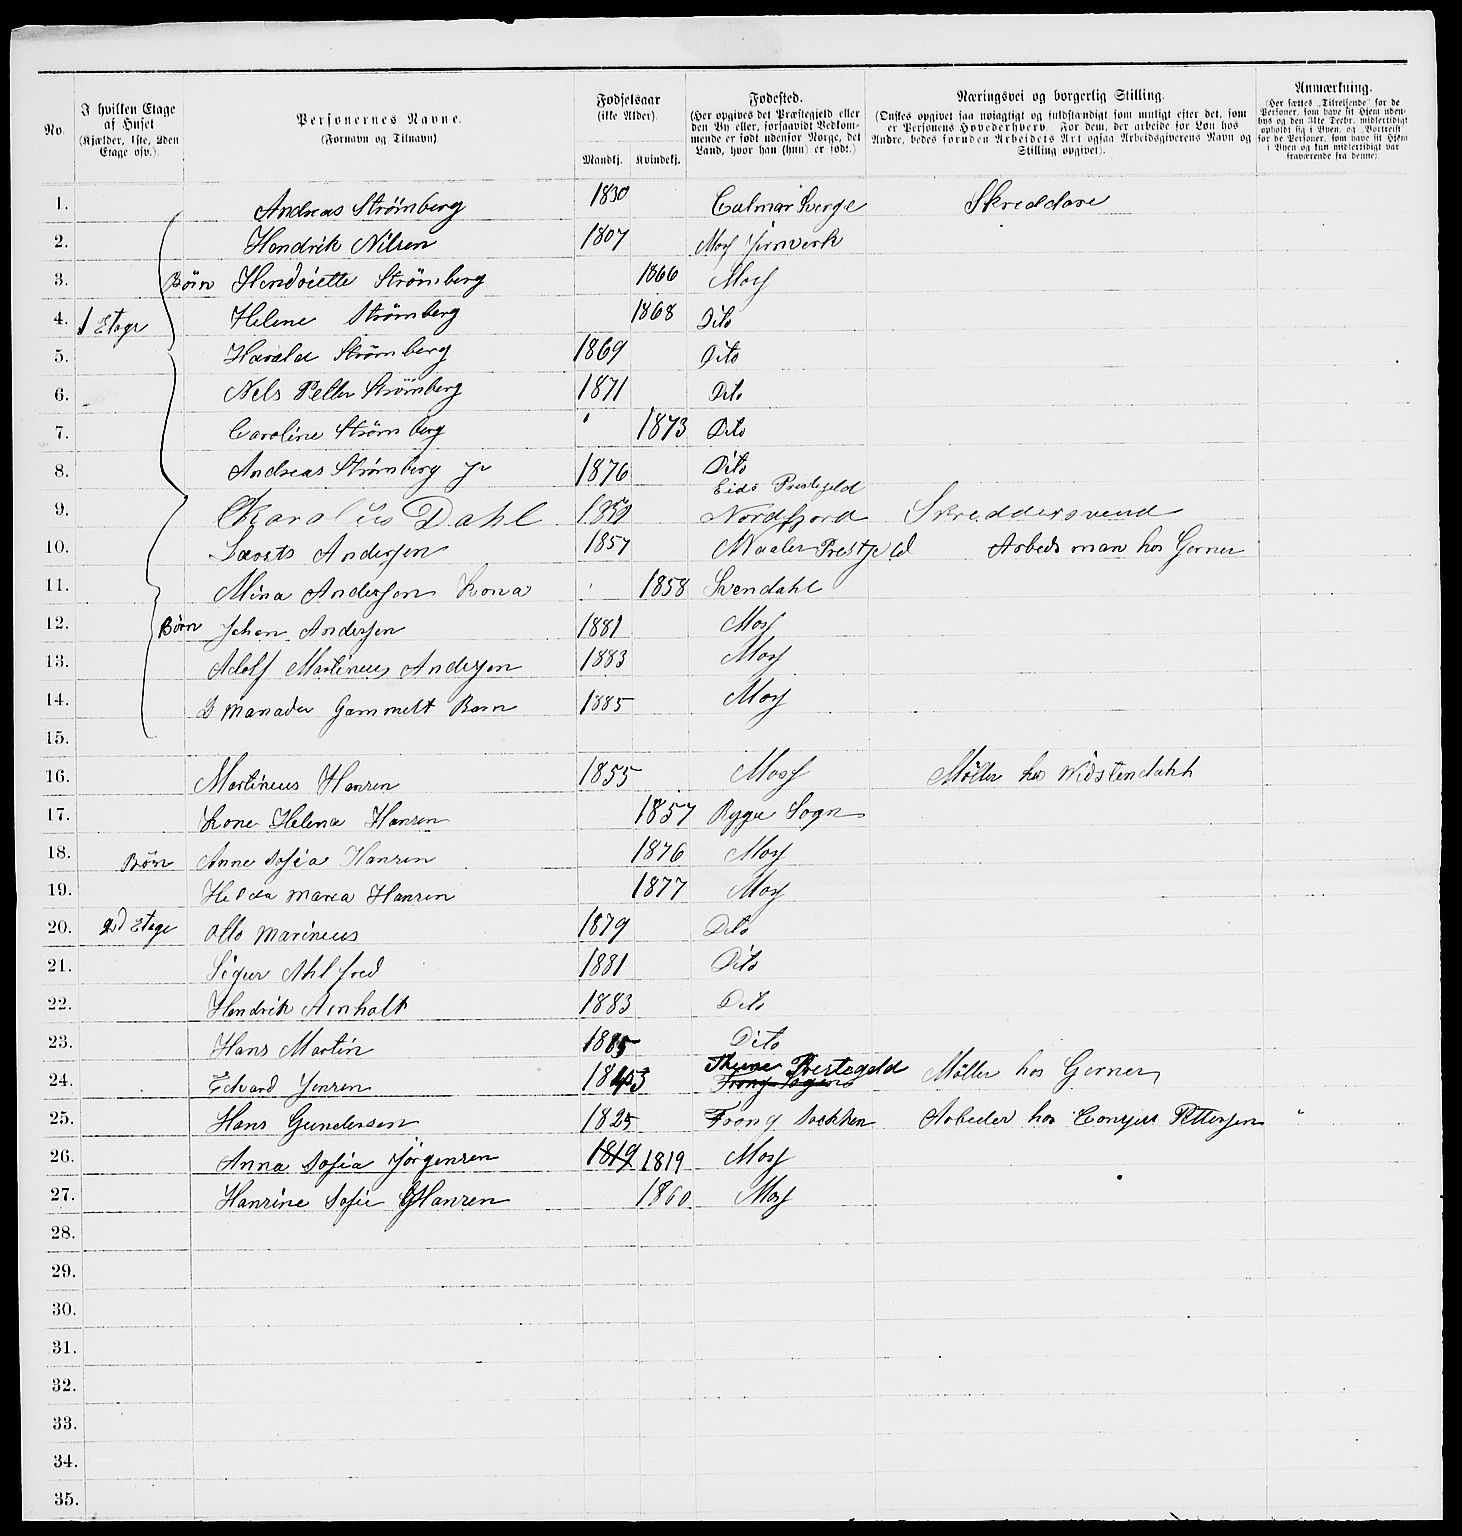 No.
I hvilken Etage af Huset (Kjælder, 1ste, 2den Etage osv.).
Personernes Navne. (Fornavn og Tilnavn).
Fødselsaar (ikke Alder). Mandkj. Kvindekj.
Fødested. (Her opgives det Præstegjeld eller den By eller, forsaavidt Vedkommende er født udenfor Norge, det Land, hvor han (hun) er født.)
Næringsvei og borgerlig Stilling. (Ønskes opgivet saa nøiagtigt og fuldstændigt som muligt efter det, som er Personens Hovederhverv. For dem, der arbeide for Løn hos Andre, bedes foruden Arbeidets Art ogsaa Arbeidsgiverens Navn og Stilling opgivet).
Anmærkning. (Her sættes „Tilreisende“ for de Personer, som have sit Hjem udenbys og den 31te Decbr. midlertidigt opholdt sig i Byen, og „Bortreist“ for de Personer, som have sit Hjem i Byen og kun midlertidigt var fraværende fra denne).
1. Andreas Strömberg 1830 Calmar Sverge Skreddare
2. Hendrik Nilsen 1807 Moss Jirnverk
3. Börn Hendriette Strömberg 1866 Moss
4. 1 Etage Helene Strömberg 1868 Dito
5. Harald Strömberg 1869 Dito
6. Nels Petter Strömberg 1871 Dito
7. Caroline Strömberg 1873 Dito
8. Andreas Strömberg jr 1876 Dito
Eids Prestegeld
9. Karolius Dahl Nordfjord Skreddersvend
10. Andersen 1857 Maaler Prestjeld Arbeds man hos Gerner
11. Mina Andersen Kona 1858 Svendahl
12. Börn Johan Andersen 1881 Moss
13. Adolf Martineus Andersen 1883 Moss
14. Manader Gammelt Barn 1885 Moss
15.
16. Martineus Hansen 1855 Moss Möller hos Widstendahl
17. Kone Helena Hansen 1857 Rygge Sogn
18. Börn Anne Sofia Hansen 1876 Moss
19. Helda Maria Hansen 1877 Moss
20. 2d Etage Otto Marineus 1879 Dito
21. Sigur Ahlfred 1881 Dito
22. Hendrik Arnholt 1883 Dito
23. Hans Martin 1885 Dito
Thune Prestegeld
24. Edvard Jensen 1843 Möller hos Gerner
25. Hans Gundersen 1825 Trong Sockken Arbeder hos Conyul Pettersen
26. Anna Sofia Jörgensen 1819 1819 Moss
27. Hansine Sofie Hansen 1860 Moss
28.
29.
30.
31.
32.
33.
34.
35.